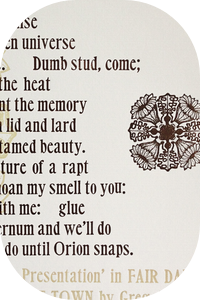 en universe
Dumb stud, come;
the heat
nt the memory
lid and lard
tamed beauty.
ture of a rapt
oan my smell to you:
ith me: glue
ernum and we'll do
do until Orion snaps.
Presentation' in FAIR DA
TOWN by Gree